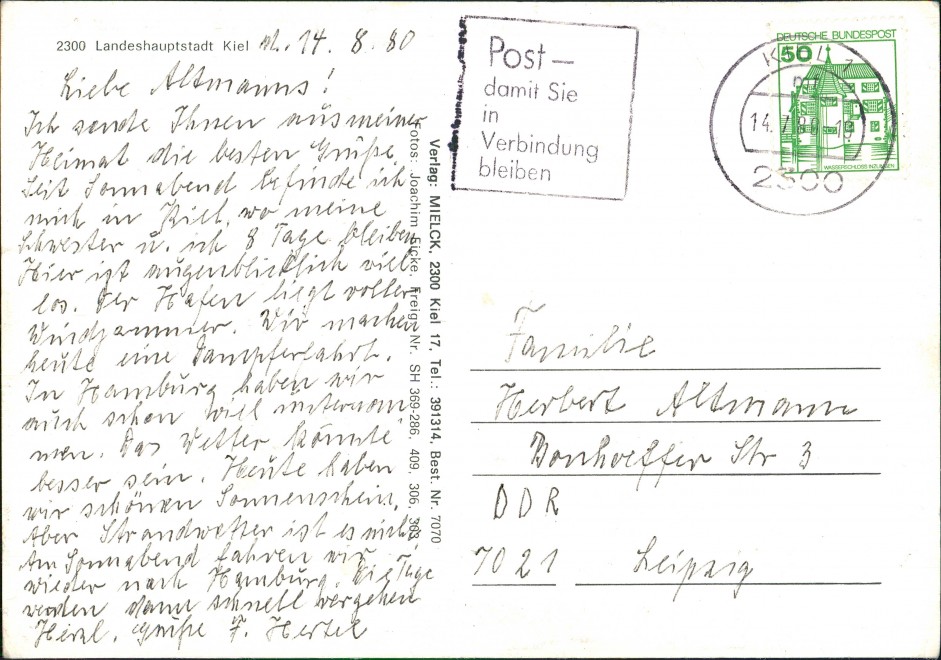 2300 Landeshauptstadt Kiel d. 14. 8. 80
Liebe Altmanns!
Ich sende Ihnen aus meiner
Heimat die besten Grüße.
Seit Sonnabend befinde ich
mich in Kiel, wo meine
Schwester u. ich 8 Tage bleiben
Hier ist augenblicklich viel
los. Der Hafen liegt voller
Windjammer. Wir machen
heute eine Dampferfahrt.
In Hamburg haben wir
auch schon viel unternom
men. Das Wetter könnte
besser sein. Heute haben
wir schönen Sonnenschein.
Aber Strandwetter ist es nicht.
Am Sonnabend fahren wir
wieder nach Hamburg. Die Tage
werden dann schnell vergehen
Herzl. Grüße F. Hertel
Fotos: Joachim Eicke, Freig. Nr. SH 369-286, 409, 306, 303
Verlag: MIELCK, 2300 Kiel 17, Tel.: 391314, Best. Nr. 7070
Post –
damit Sie
in
Verbindung
bleiben
DEUTSCHE BUNDESPOST
50
WASSERSCHLOSS INZLINGEN
KIEL 1
2300
Familie
Herbert Altmann
Bonhoeffer Str 3
DDR
7021 Leipzig